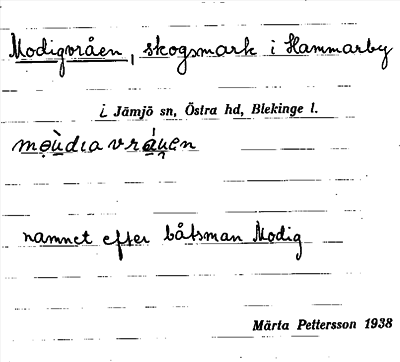 Modigvråen, skogsmark i Hammarby
i Jämjö sn, Östra hd, Blekinge l.
namnet efter båtsman Modig
Märta Pettersson 1938